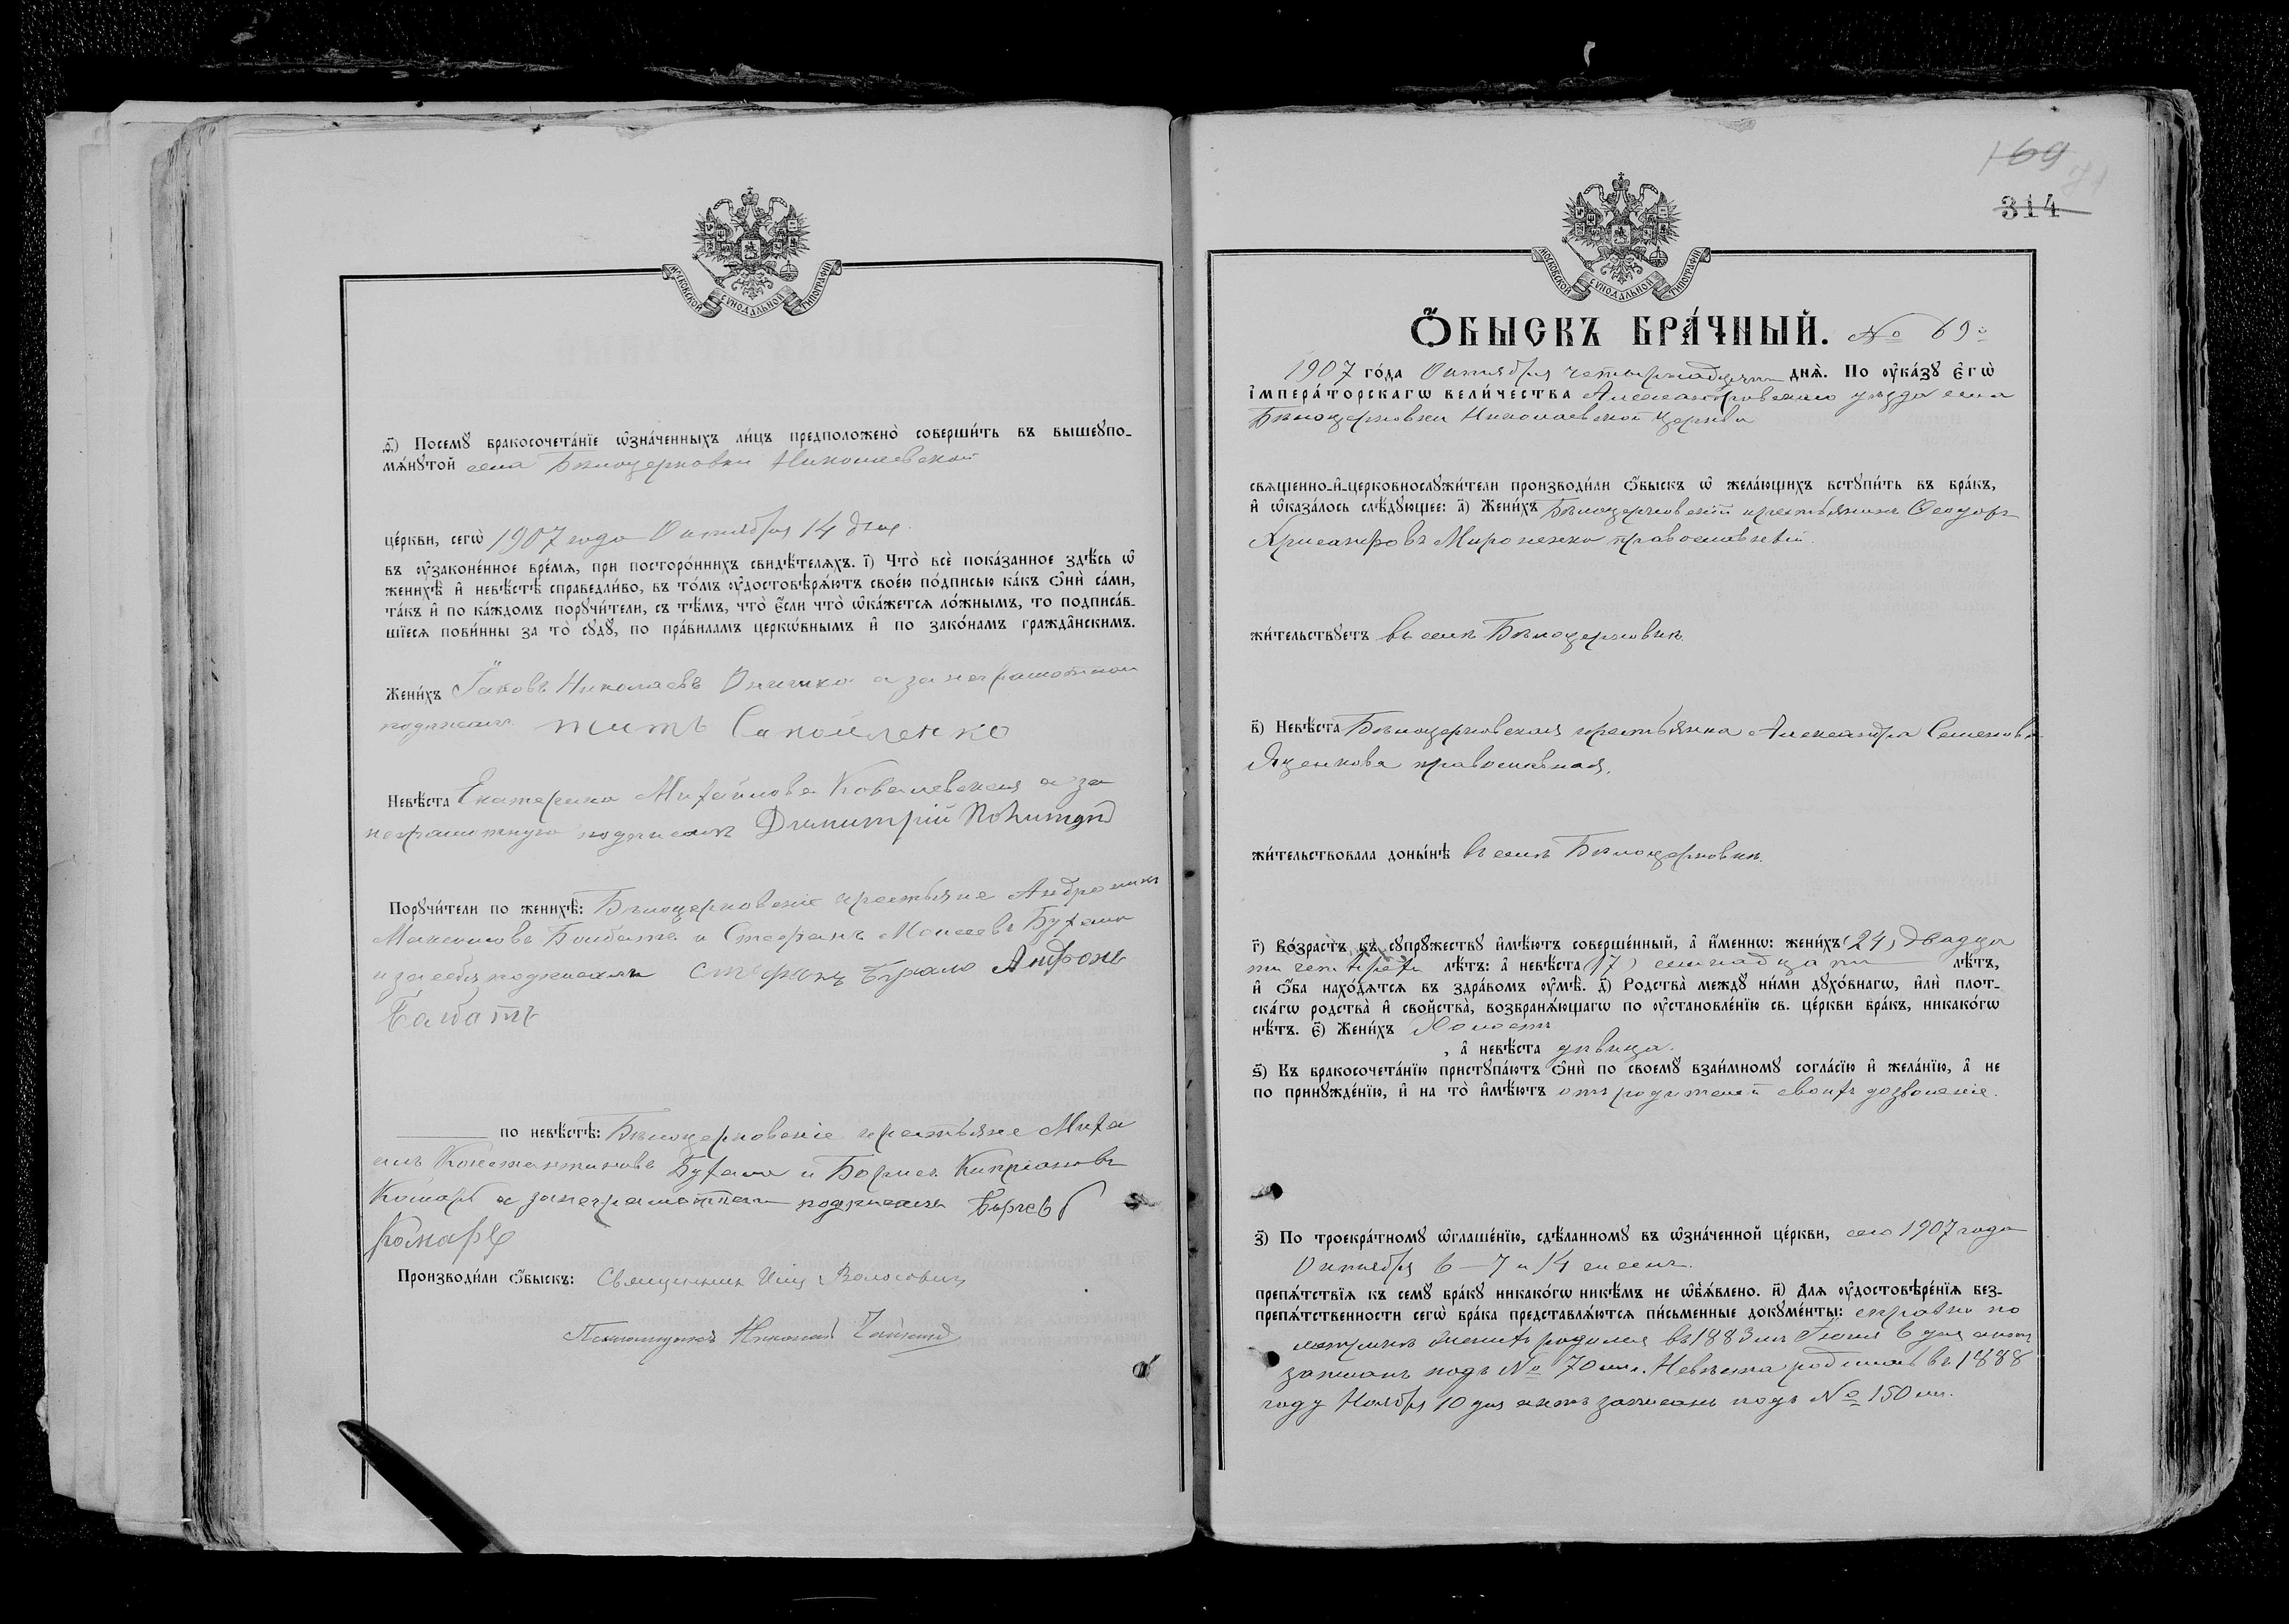 МОСКОВСКОЙ СѴНОДАЛЬНОЙ ТИПОГРАФІИ
Посемꙋ̀ бракосочета́нїе ѡ҆зна́ченныхъ ли́цъ предположено̀ соверши́ть въ вышеꙋпо-
мѧ́нꙋтой села Бѣлоцерковки Николаевской
це́ркви, сегѡ̀ 1907 года Октября 14 дня
въ ᲂу҆законе́нное вре́мѧ, при посторо́ннихъ свидѣ́телѧхъ. і҃) Что̀ всѐ пока́занное здѣ́сь ѡ҆
женихѣ̀ и҆ невѣ́стѣ справедли́во, въ то́мъ ᲂу҆достовѣрѧ́ютъ свое́ю по́дписью ка́къ ѻ҆нѝ са́ми,
та́къ и҆ по ка́ждомъ порꙋчи́тели, съ тѣ́мъ, что̀ є҆́сли что̀ ѡ҆ка́жетсѧ ло́жнымъ, то подписа́в-
шїесѧ пови́нны за то̀ сꙋдꙋ̀, по пра́виламъ церко́внымъ и҆ по зако́намъ гражда̑нскимъ.
Жени́хъ Іаковъ Николаевъ а за неграмотнаго
подписалъ Титъ Самойленко
Невѣ́ста Екатерина Михайлова Ковалевская а за
неграмотную подписалъ Димитрий
Порꙋчи́тели по женихѣ̀: Бѣлоцерковскіе крестьяне Андроникъ
Максимовъ и Стефанъ Моисеевъ Бухало
и за себя подписали Стефанъ Бухало
по невѣ́стѣ: Бѣлоцерковскіе крестьяне Миха
илъ Константиновъ Бухало и Борисъ Кипріановъ
Комаръ а за неграмотныхъ подписалъ
Комаръ
Производи́ли ѻ҆́быскъ: Священникъ Волосовичъ
Псаломщикъ Николай
169
314
МОСКОВСКОЙ СѴНОДАЛЬНОЙ ТИПОГРАФІИ
Ѻ҆́БЫСКЪ БРА́ЧНЫЙ. № 69й
1907 го́да Октября четырнадцати днѧ̀. По ᲂу҆ка́зꙋ є҆гѡ̀
і҆мпера́торскагѡ вели́чества Александровскаго уѣзда села
Бѣлоцерковки Николаевской Церкви
свѧщенно-и҆-церковнослꙋжи́тели производи́ли ѻ҆́быскъ ѡ҆ жела́ющихъ встꙋпи́ть въ бра́къ,
и҆ ѡ҆каза́лось слѣ́дꙋющее: а҃) Жени́хъ Бѣлоцерковскій крестьянинъ Ѳеодоръ
Хрисанфовъ Мироненко православный.
жи́тельствꙋетъ въ селѣ Бѣлоцерковкѣ.
в҃) Невѣ́ста Бѣлоцерковская крестьянка Александра Семенова
Яценкова православная.
жи́тельствовала доны́нѣ въ селѣ Бѣлоцерковкѣ.
г҃) Во́зрастъ къ сꙋпрꙋ́жествꙋ и҆мѣ́ютъ соверше́нный, а҆ и҆́меннѡ: жени́хъ (24) двадца
ти четырехъ лѣ́тъ: а҆ невѣ́ста (17) семнадцати лѣ́тъ,
и҆ ѻ҆́ба нахо́дѧтсѧ въ здра́вомъ ᲂу҆мѣ̀. д҃) Родства̀ междꙋ̀ ни́ми дꙋхо́внагѡ, и҆лѝ плот-
ска́гѡ родства̀ и҆ сво́йства, возбранѧ́ющагѡ по ᲂу҆становле́нїю св. це́ркви бра́къ, никако́гѡ
нѣ́тъ. є҃) Жени́хъ Холостъ
, а҆ невѣ́ста дѣвица.
ѕ҃) Къ бракосочета́нїю пристꙋпа́ютъ ѻ҆нѝ по своемꙋ̀ взаи́мномꙋ согла́сїю и҆ жела́нїю, а҆ не
по принꙋжде́нїю, и҆ на то̀ и҆мѣ́ютъ отъ родителей своихъ дозволеніе.
з҃) По троекра́тномꙋ ѡ҆глаше́нїю, сдѣ́ланномꙋ въ ѡ҆зна́ченной це́ркви, сего 1907 года
Октября 6–7 и 14 чиселъ.
препѧ́тствїѧ къ семꙋ̀ бра́кꙋ никако́гѡ никѣ́мъ не ѡ҆б̾ѧ́влено. и҃) Длѧ ᲂу҆достовѣре́нїѧ без-
препѧ́тственности сегѡ̀ бра́ка представлѧ́ютсѧ пи́сьменные докꙋме́нты: справка по
метрикѣ Женихъ родился въ 1883 мъ Іюня 6 дня актъ
записанъ подъ № 70 мъ. Невѣста родилась въ 1888
году Ноября 10 дня актъ записанъ подъ № 150 мъ.